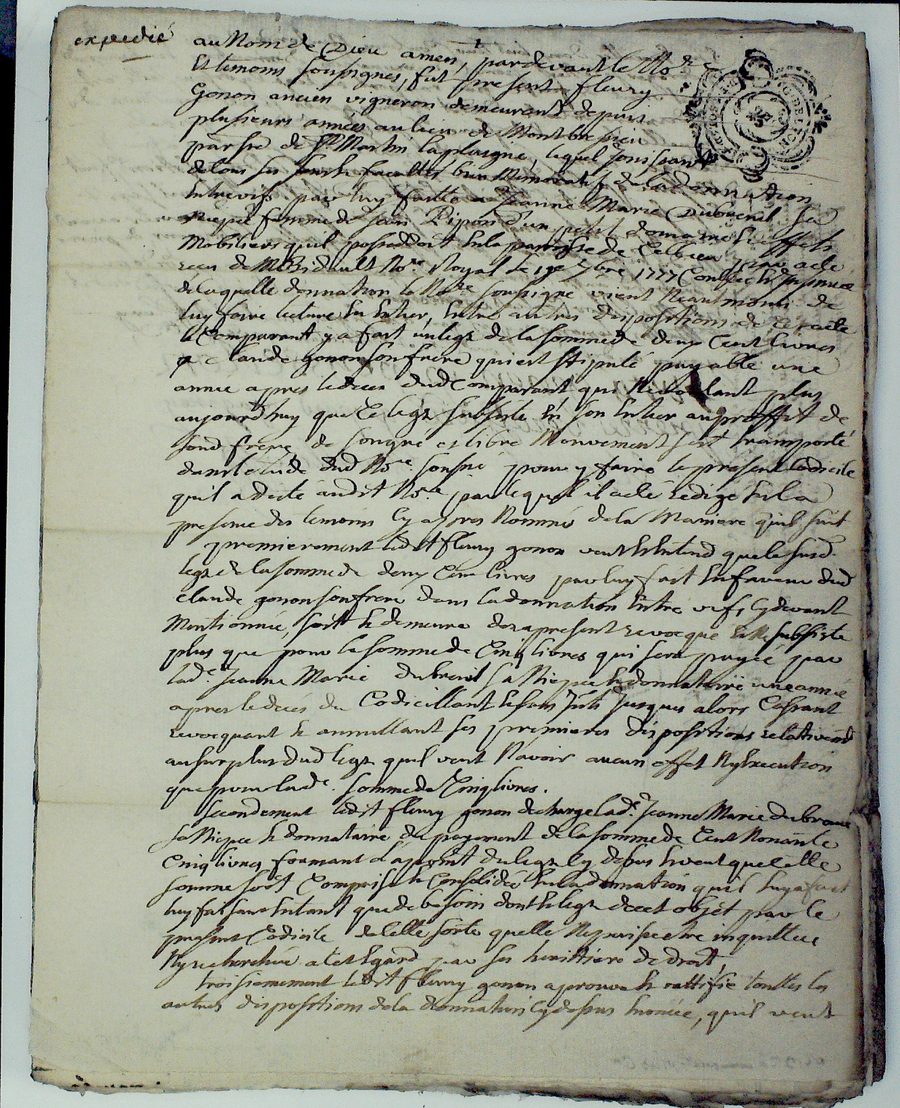 expedié
au Nom de Dieu amen, pardevant le No.re
Et temoins soussignés, fut present fleury
Gonon ancien vigneron demeurant depuis
plusieurs années au lieu de
parsse de St Martin laplaigne, lequel jouissant
de tous ses sens la donnation
Entrevifs par luy faitte a Jeanne Marie Dubreuil sa
Niepce femme de Jean d'un petit domaine & effets
Mobiliers quil possedoit en la parroisse de par acte
receu de Me No.re Royal le 7bre 1777
de laquelle donnation le No.re soussigné vient de
luy faire lecture En Entier, Entre autres dispositions de cet acte
le Comparant y a fait un legz de la somme de deux Cent livres
a claude gonon son frere qui est stipulé payable une
année apres le deces dud Comparant qui ne voulant plus
aujourdhuy que ce legz subsiste En son Entier au proffit de
sond frere, de son gré et libre Mouvement s'est transporté
dans letude dud No.re soussigné pour y faire le present Codicile
qu'il a dicté audit No.re par lequel il a eté redigé En la
presence des temoins cy apres Nommés de la Maniere qu'il suit
premierement ledit fleury gonon veut & Entend que le susd
legz de la somme de deux Cens livres par luy fait En faveur dud
Claude gonon son frere dans la donnation Entre vifs cy devant
Mentionnée, soit & demeure des apresent revocqué & Ne subsiste
plus que pour la somme de Cinq livres qui sera payée par
lad.e Jeanne Marie dubreuil sa Niepce & donnataire une année
apres le décés du Codicillant & sans jusques alors Cassant
revocquant & annullant ses premieres dispositions relativemt
au surplus dud legz quil veut Navoir aucun effet Ny Execution
que pour lad.e somme de Cinq livres.
Secondement ledit fleury gonon decharge lad.e Jeanne Marie dubreuil
sa Niepce & donnataire du payement de la somme de Cent Nonante
Cinq livres formant du legz cy dessus & veut que telle
somme soit Comprise & Consolidée En la donnation qu'il luy a fait
luy faisant En tant que de besoin don & legz de cet objet par le
present Codicile de telle sorte quelle Ne puisse etre inquiettée
Ny recherchée a cet Egard par ses heritiers de droit
troisiemement ledit fleury gonon aprouve & rattifie touttes les
autres dispositions de la donnation Cy dessus Enoncée, quil veut